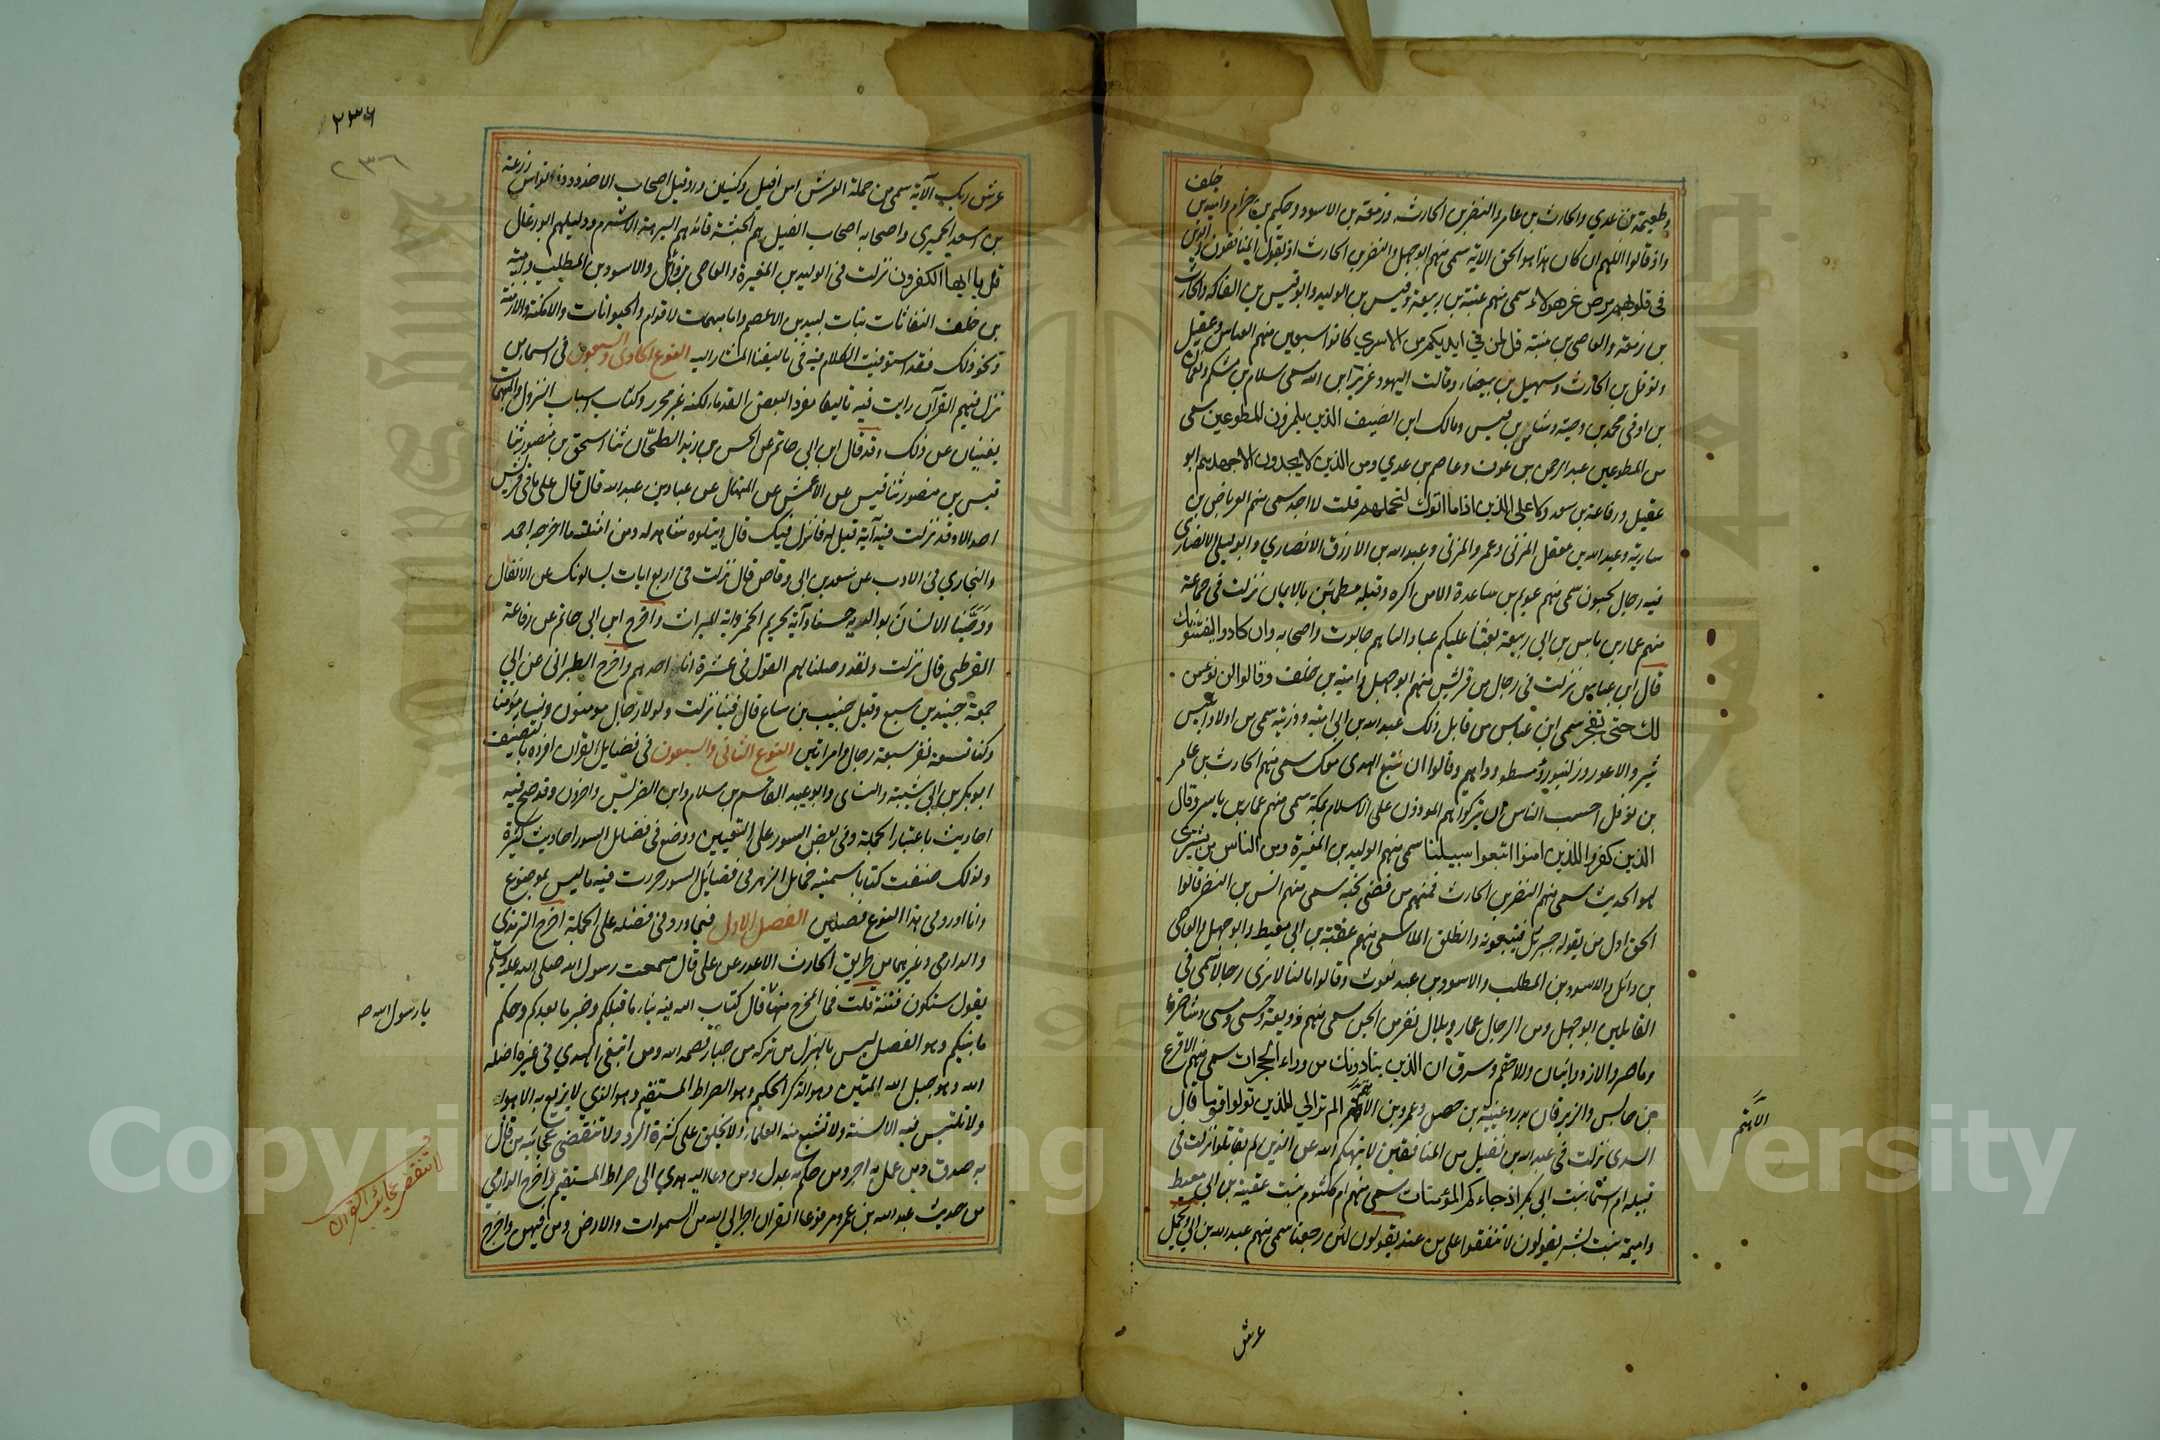 خلف
وطعيمة بن عدي والحارث بن عامر والنضر بن الحارث وزمعة بن الاسود وحكيم بن حزام وامية بن
واذ قالوا اللهم ان كان هذا هو الحق الاية سمى منهم ابو جهل والنضر بن الحارث اذ يقول المنافقون والذين
في قلوبهم مرض غر هولاء سمى منهم عتبة بن ربيعة وقيس بن الوليد وابو قيس بن الفاكه والحارث
بن زمعة والعاصي بن منبه قل لمن في ايديكم من الاسرى كانوا سبعين منهم العباس وعقيل
ونوفل بن الحارث وسهيل بن بيضاء وقالت اليهود عزير ابن الله سمى سلام بن مشكم ونعمان
بن اوفى ومحمد بن دحية وشاس بن قيس ومالك ابن الضيف الذين يلمزون المطوعين سمى
من المطوعين عبد الرحمن بن عوف وعاصم بن عدي ومن الذين لا يجدون الا جهدهم ابو
عقيل ورفاعة بن سعد ولا على الذين اذا ما اتوك لتحملهم قلت لا اجد سمى منهم العرباض بن
سارية وعبد الله بن معقل المزني وعمرو المزني وعبد الله بن الازرق الانصاري وابو ليلى الانصاري
فيه رجال يحبون سمى منهم عويم بن ساعدة الا من اكره وقلبه مطمئن بالايمان نزلت في جماعة
منهم عمار بن ياسر بن ابي ربيعة بعثنا عليكم عبادا لنا هم جالوت واصحابه وان كادوا ليفتنونك
قال ابن عباس نزلت في رجال من قريش منهم ابو جهل وامية بن خلف وقالوا لن نؤمن
لك حتى تفجر سمى ابن عباس من قابل ذلك عبد الله بن ابي امية وذريته سمى من اولاد ابليس
ثبر والاعور وزلنبور ومسطو وداسم وقالوا ان نتبع الهدى معك سمى منهم الحارث بن عامر
بن نوفل احسب الناس ان يتركوا هم الموذون على الاسلام بمكة سمى منهم عمار بن ياسر وقال
الذين كفروا للذين امنوا اتبعوا سبيلنا سمى منهم الوليد بن المغيرة ومن الناس من يشتري
لهو الحديث سمى منهم النضر بن الحارث فمنهم من قضى نحبه سمى منهم انس بن النضر قالوا
الحق اول من يقوله جبريل فيتبعونه وانطلق الملا سمى منهم عقبة بن ابي معيط وابو جهل والعاصي
بن وائل والاسود بن المطلب والاسود بن عبد يغوث وقالوا ما لنا لا نرى رجالا سمى في
القائلين ابو جهل ومن الرجال عمار وبلال نفر من الجن سمى منهم زوبعة وحسى ومسى وشاصر
وماصر والازد وانيان والاحقم وسرق ان الذين ينادونك من وراء الحجرات سمى منهم الاقرع
بن حابس والزبرقان بن بدر وعيينة بن حصن وعمرو بن الاهتم الم تر الى الذين تولوا قوما قال
السدى نزلت في عبد الله بن نفيل من المنافقين لا ينهيكم الله عن الذين لم يقاتلوكم نزلت في
قتيلة ام اسماء بنت ابي بكر اذا جاءكم المؤمنات سمى منهم ام كلثوم بنت عقبة بن ابي معيط
واميمة بنت بشر يقولون لا تنفقوا على من عند يقولون لئن رجعنا سمى منهم عبد الله بن ابي ويحمل
الاهتم
عرش
٢٣٦
٢٣٦
عرش ربك الآية سمى من حملة العرش اسرافيل ولبنان وروفيل اصحاب الاخدود ذو نواس زرعة
بن اسعد الحميري واصحابه اصحاب الفيل هم الحبشة قائدهم ابرهة الاشرم ودليلهم ابو رغال
قل يا ايها الكفرون نزلت في الوليد بن المغيرة والعاصي بن وائل والاسود بن المطلب وامية
بن خلف النفاثات بنات لبيد بن الاعصم واما مبهمات الاقوام والحيوانات والامكنة والازمنة
ونحو ذلك فقد استوفيت الكلام فيه في تاليفنا المشار اليه النوع الحادي والسبعون في اسماء من
نزل فيهم القرآن رايت فيه تاليفا مفردا لبعض القدماء لكنه غير محرر وكتاب اسباب النزول والمبهمات
يغنيان عن ذلك وقد قال ابن ابي حاتم عن الحسن بن زيد الطحان ثنا اسحق بن منصور ثنا
قيس بن منصور ثنا قيس عن الاعمش عن المنهال عن عباد بن عبد الله قال قال علي ما في قريش
احد الا وقد نزلت فيه آية قيل له فما نزل فيك قال ويتلوه شاهد له ومن امثلته ما اخرجه احمد
والبخاري في الادب عن سعد بن ابي وقاص قال نزلت في اربع ايات يسالونك عن الانفال
ووصينا الانسان بوالديه حسنا وآية تحريم الخمر واية الميراث واخرج ابن ابي حاتم عن رفاعة
القرظي قال نزلت ولقد وصلنا لهم القول في عشرة انا احدهم واخرج الطبراني عن ابي
جمعة جنيد بن سبع وقيل حبيب بن سباع قال فينا نزلت ولولا رجال مومنون ونساء مؤمنات
وكنا تسعة نفر سبعة رجال وامراتين النوع الثاني والسبعون في فضايل القران افرده بالتصنيف
ابو بكر بن ابي شيبة والنسائي وابو عبيد القاسم بن سلام وابن الضريس واخرون وقد صح فيه
احاديث باعتبار الجملة وفي بعض السور على التعيين ووضع في فضايل السور احاديث كثيرة
ولذلك صنفت كتابا سميته خمايل الزهر في فضائل السور حررت فيه ما ليس بموضوع
وانا اورد في هذا النوع فصلين الفصل الاول فيما ورد في فضله على الجملة اخرج الترمذي
والدارمي وغيرهما من طريق الحارث الاعور عن علي قال سمعت رسول الله صلى الله عليه وسلم
يقول ستكون فتنة قلت فما المخرج منها قال كتاب الله فيه نباء ما قبلكم وخبر ما بعدكم وحكم
ما بينكم وهو الفصل ليس بالهزل من تركه من جبار قصمه الله ومن ابتغى الهدي في غيره اضله
الله وهو حبل الله المتين وهو الذكر الحكيم وهو الصراط المستقيم وهو الذي لا يزيغ به الاهواء
ولا تلتبس فيه الالسنة ولا تشبع منه العلماء ولا يخلق على كثرة الرد ولا تنقضي عجائبه من قال
به صدق ومن عمل به اجر ومن حكم به عدل ومن دعا اليه هدي الى صراط المستقيم واخرج الدارمي
من حديث عبد الله بن عمرو مرفوعا القران احب الى الله من السموات والارض ومن فيهن واخرج
يا رسول الله صه
Copyright © King Saud University